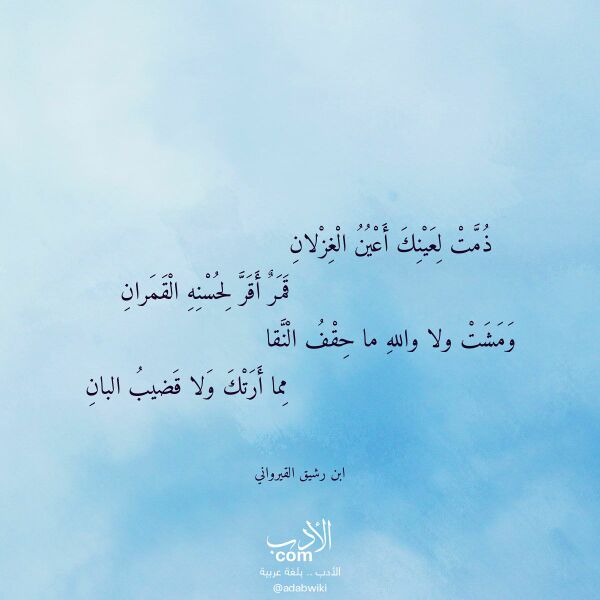 ذُمَّتْ لِعَيْنِكَ أَعْيُنُ الْغِزْلانِ
قَمَرٌ أَقَرَّ لِحُسْنِهِ الْقَمَرانِ
وَمَشَتْ ولا واللهِ ما حِقْفُ الْنَّقا
مِما أَرَتْكَ وَلا قَضيبُ البانِ
ابن رشيق القيرواني
الأدب
com
الأدب .. بلغة عربية
@adabwiki